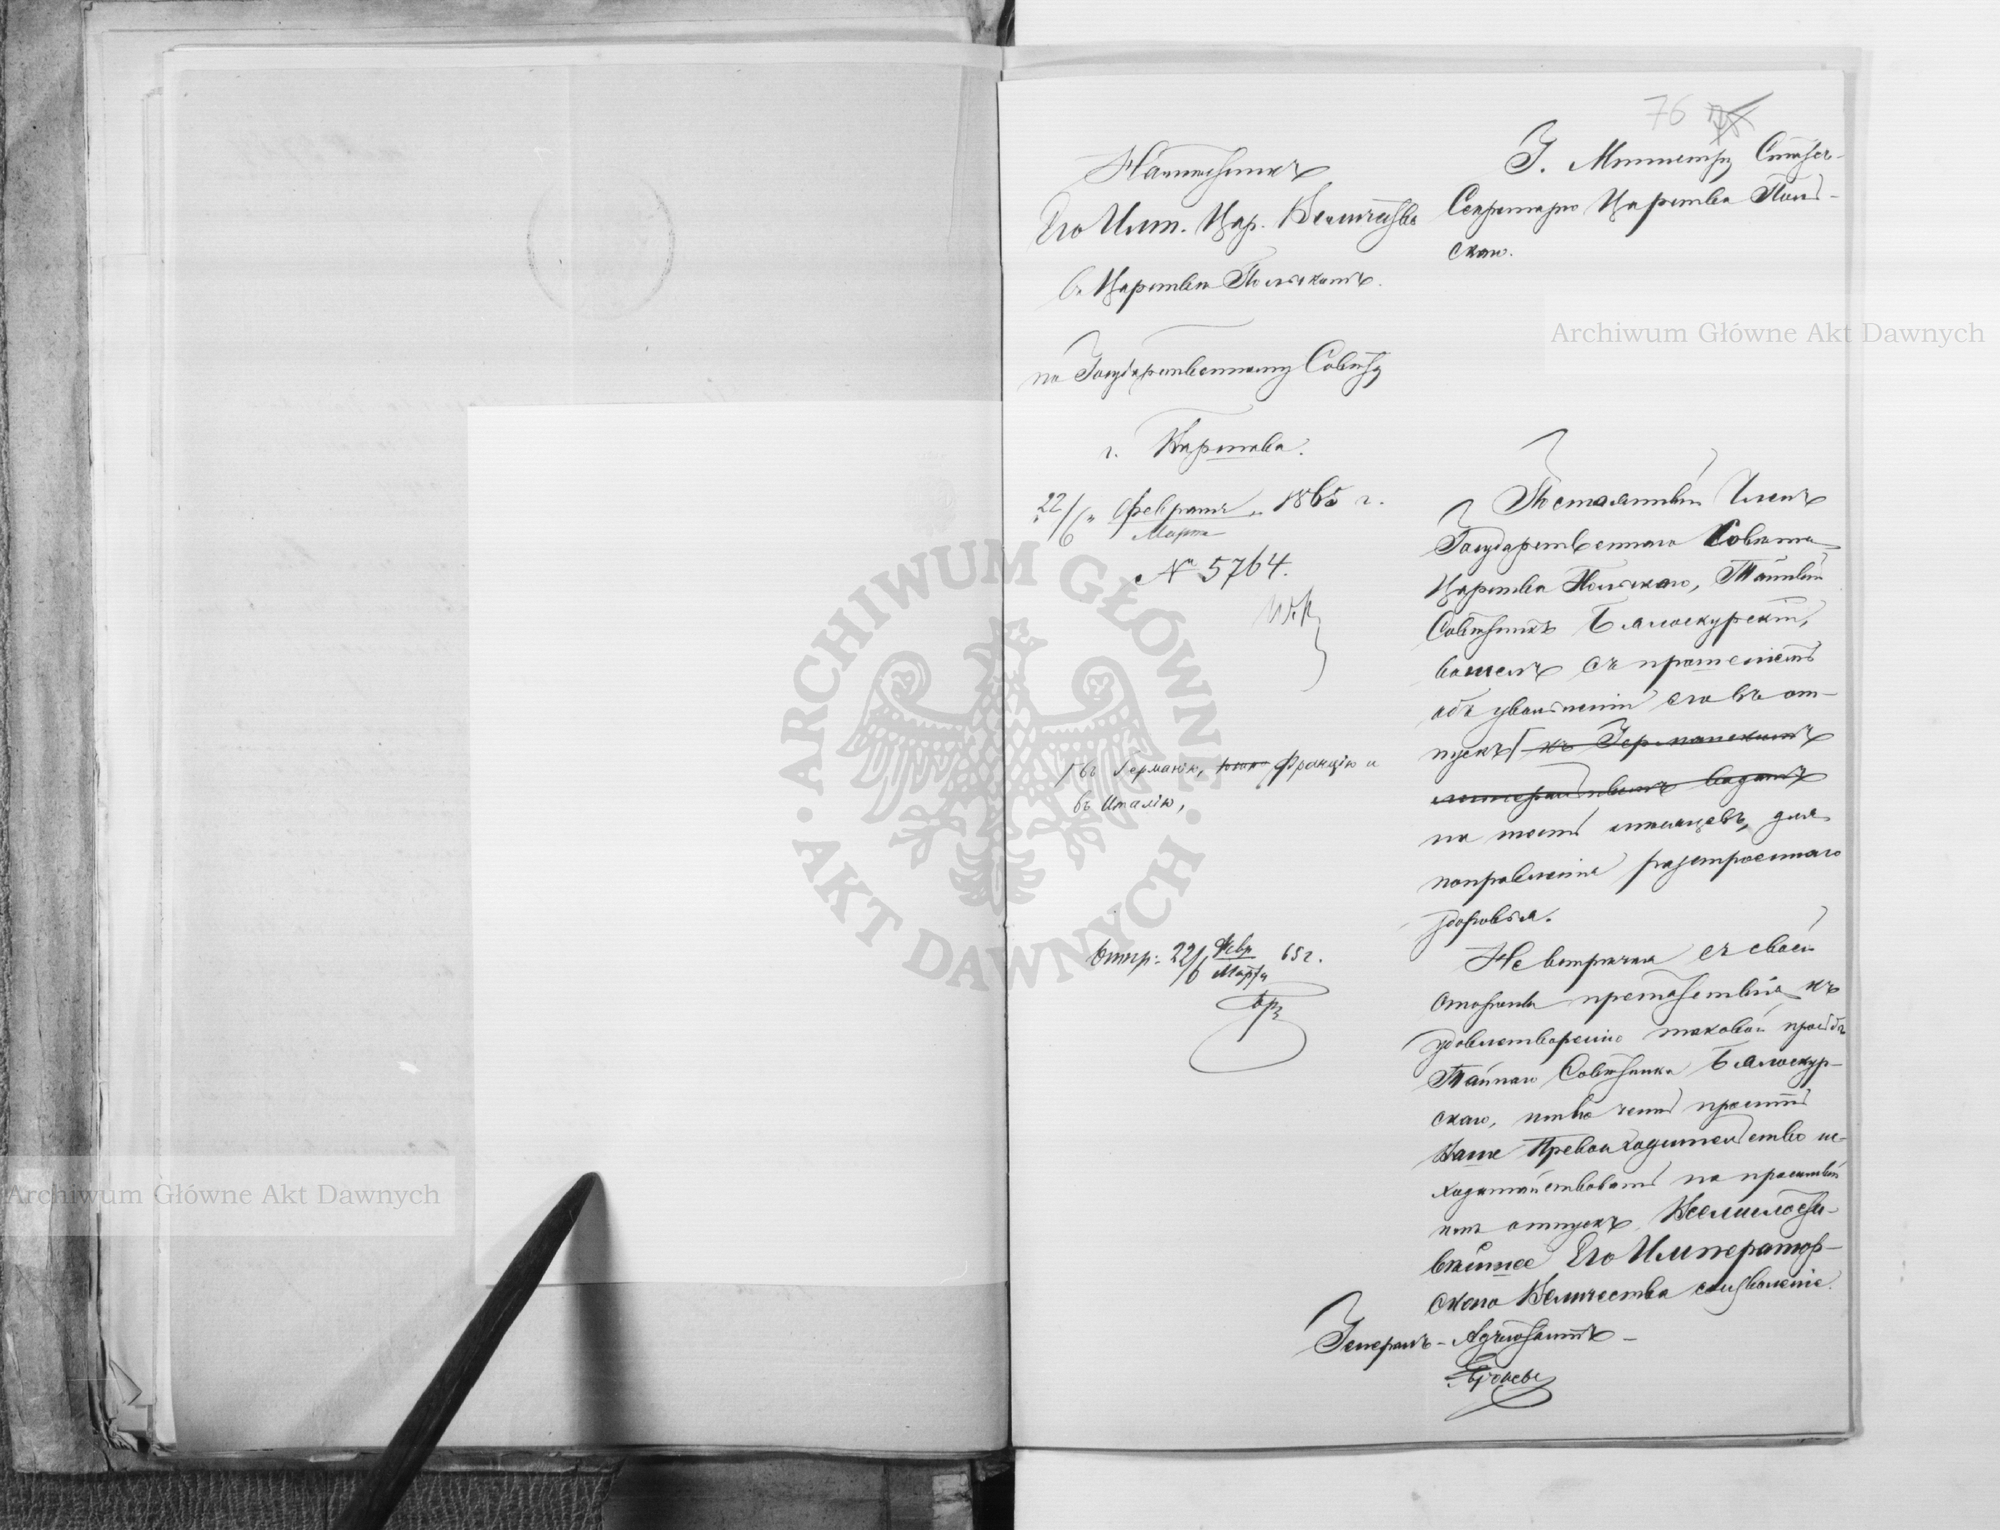 76
Намѣстникъ
Его Имп. Цар. Величества
въ Царствѣ Польскомъ.
по Государственному Совѣту
г. Варшава.
22/6 Февраля/Марта 1865 г.
№ 5764.
Г. Министру Статсъ-
Секретарю Царства Поль-
скаго.
Постоянный Членъ
Государственнаго Совѣта
Царства Польскаго, Тайный
Совѣтникъ Бялоскурскій,
вошелъ съ прошеніемъ
объ увольненіи его въ от-
пускъ къ Германскимъ
минеральнымъ водамъ
на шесть мѣсяцевъ, для
поправленія разстроеннаго
здоровья.
въ Германію, Францію и
въ Италію,
Не встрѣчая съ своей
стороны препятствія къ
удовлетворенію таковой просьбы
Тайнаго Совѣтника Бялоскур-
скаго, имѣю честь просить
Ваше Превосходительство ис-
ходатайствовать на просимый
имъ отпускъ Всемилости-
вѣйшее Его Император-
скаго Величества соизволеніе.
Отпр: 22/6 Февр/Марта 65 г.
Генералъ-Адъютантъ
Archiwum Główne Akt Dawnych
Archiwum Główne Akt Dawnych
ARCHIWUM GŁÓWNE · AKT DAWNYCH ·